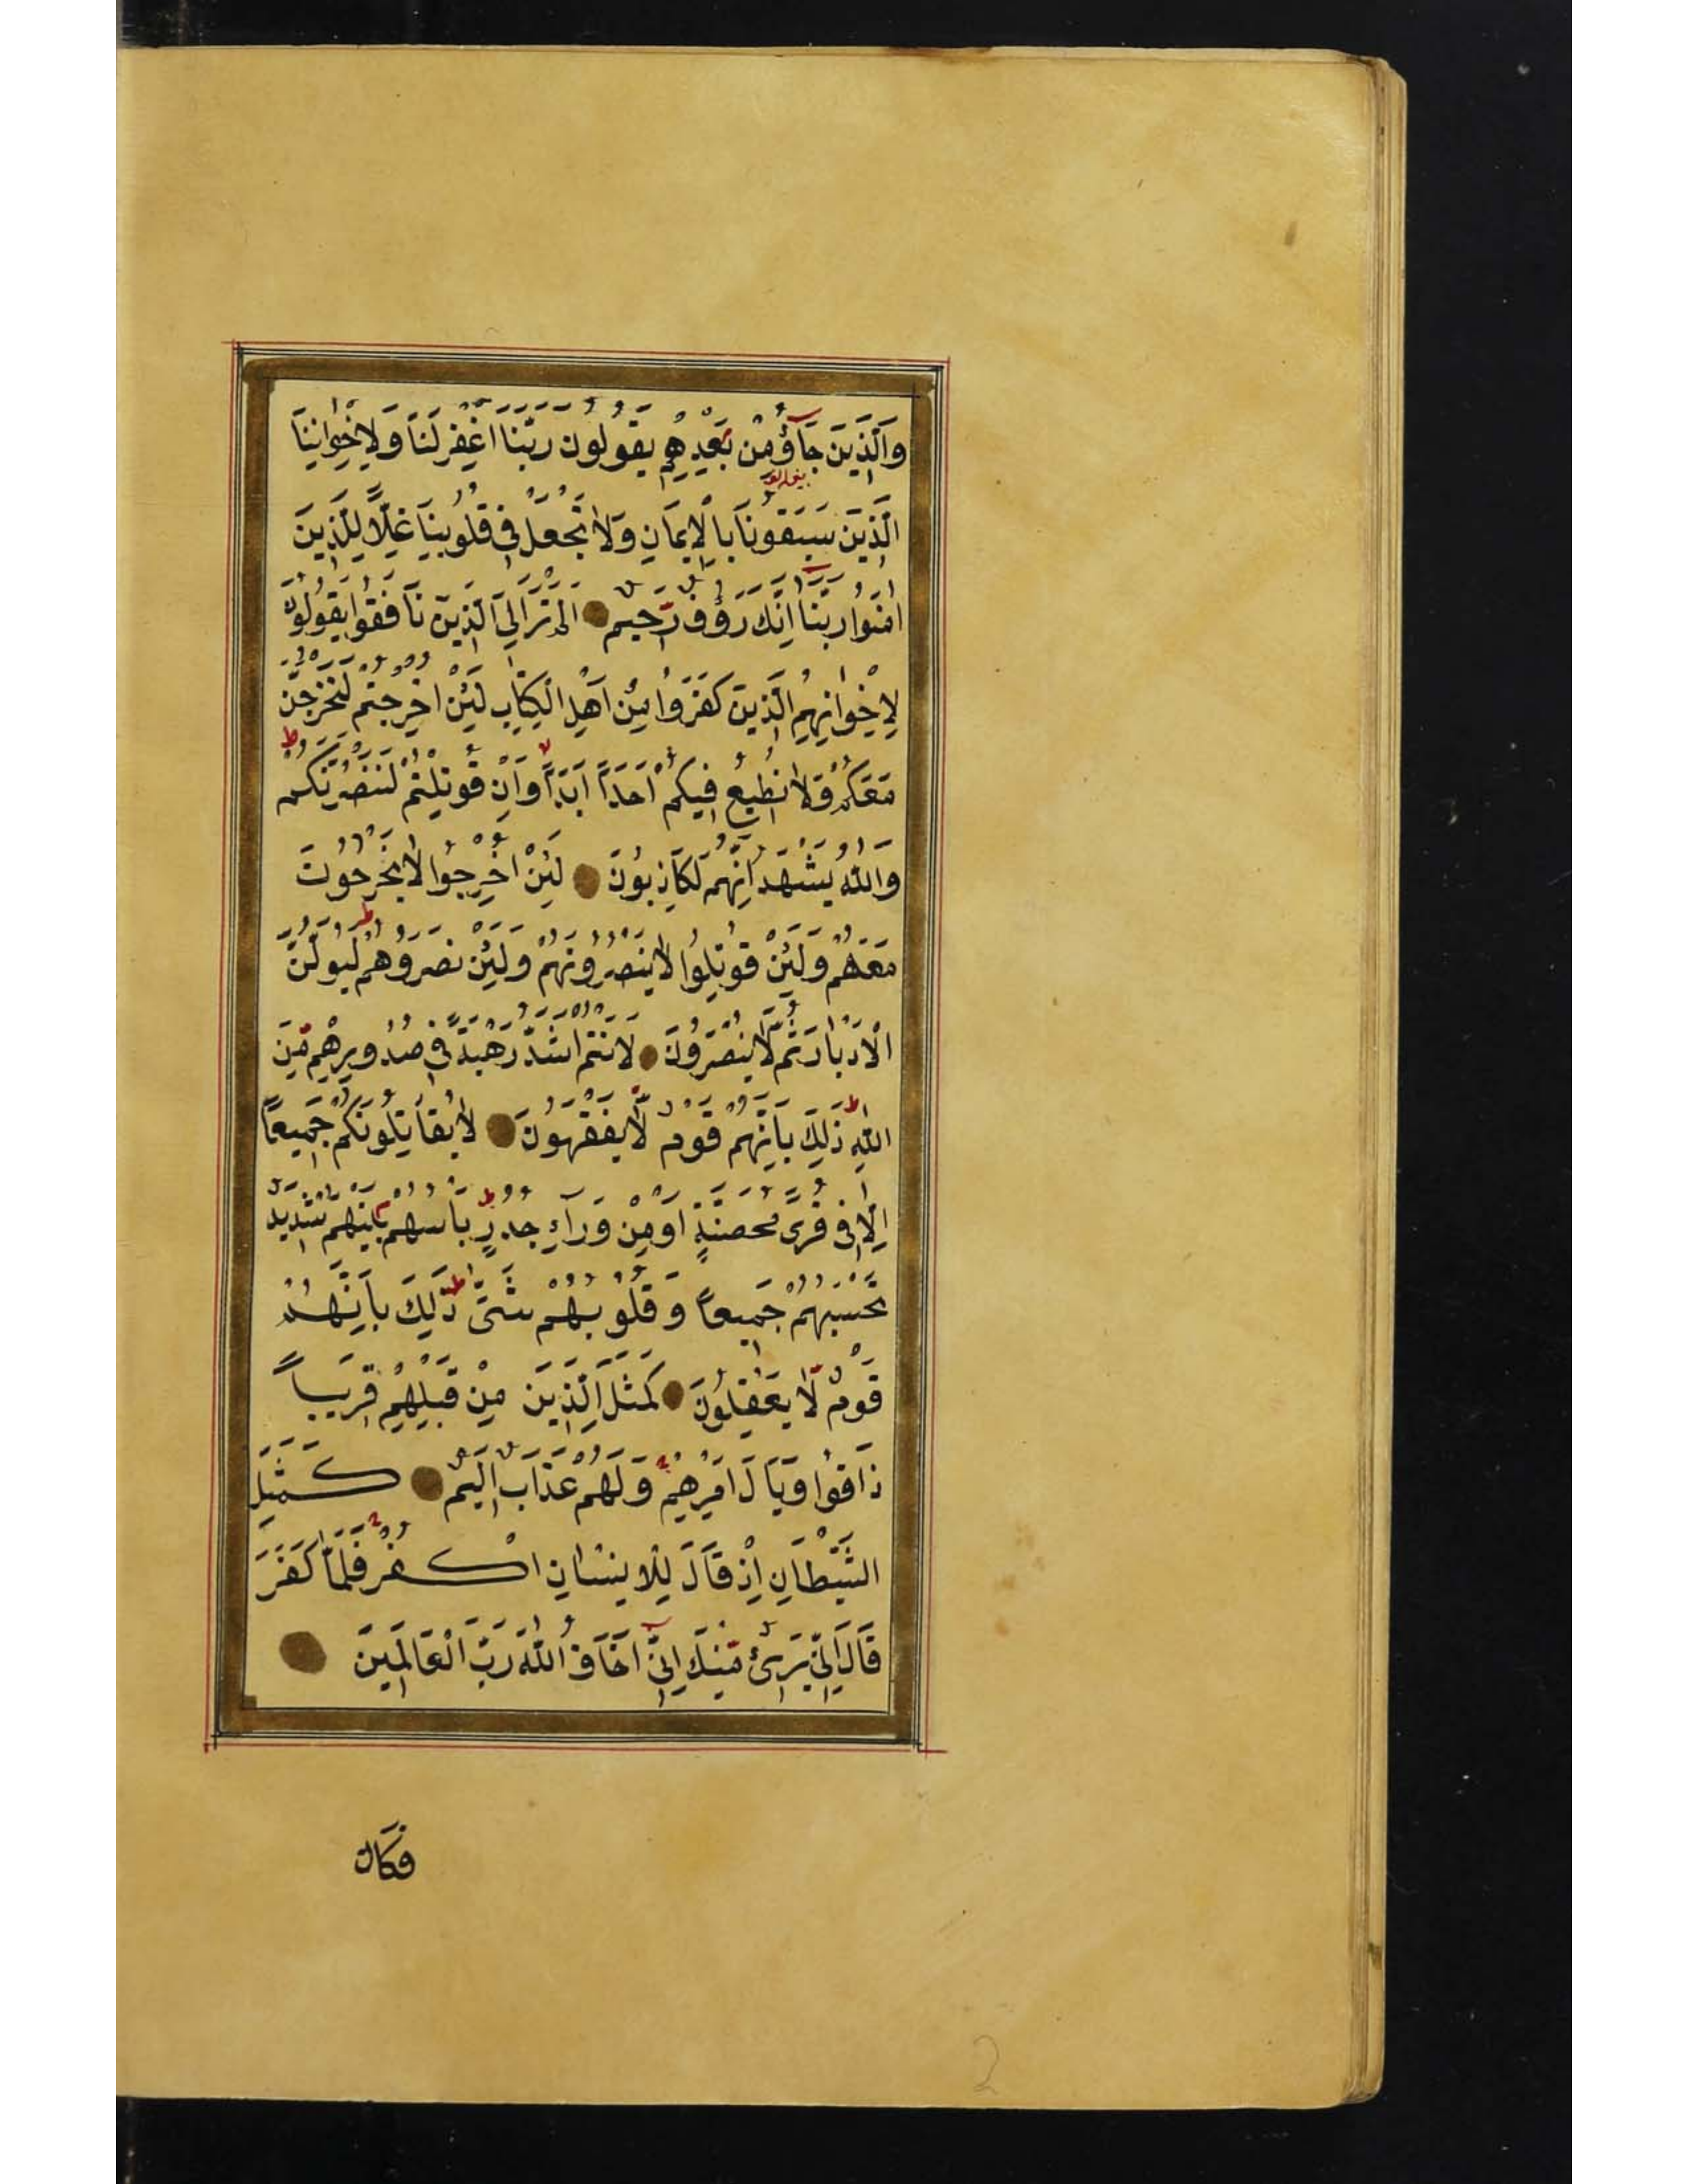 وَالَّذِينَ جَآؤُ مِنْ بَعْدِهِمْ يَقُولُونَ رَبَّنَا اغْفِرْ لَنَا وَلِاِخْوَانِنَا
الَّذِينَ سَبَقُونَا بِالْاِيمَانِ وَلَا تَجْعَلْ فِي قُلُوبِنَا غِلًّا لِلَّذِينَ
اٰمَنُوا رَبَّنَا اِنَّكَ رَؤُفٌ رَّحِيمٌ ۝ اَلَمْ تَرَ اِلَى الَّذِينَ نَافَقُوا يَقُولُونَ
لِاِخْوَانِهِمُ الَّذِينَ كَفَرُوا مِنْ اَهْلِ الْكِتَابِ لَئِنْ اُخْرِجْتُمْ لَنَخْرُجَنَّ
مَعَكُمْ وَلَا نُطِيعُ فِيكُمْ اَحَدًا اَبَدًا وَاِنْ قُوتِلْتُمْ لَنَنْصُرَنَّكُمْ ط
وَاللّٰهُ يَشْهَدُ اِنَّهُمْ لَكَاذِبُونَ ۝ لَئِنْ اُخْرِجُوا لَا يَخْرُجُونَ
مَعَهُمْ وَلَئِنْ قُوتِلُوا لَا يَنْصُرُونَهُمْ وَلَئِنْ نَصَرُوهُمْ لَيُوَلُّنَّ
الْاَدْبَارَ ثُمَّ لَا يُنْصَرُونَ ۝ لَاَنْتُمْ اَشَدُّ رَهْبَةً فِي صُدُورِهِمْ مِّنَ
اللّٰهِ ط ذٰلِكَ بِاَنَّهُمْ قَوْمٌ لَّا يَفْقَهُونَ ۝ لَا يُقَاتِلُونَكُمْ جَمِيعًا
اِلَّا فِي قُرًى مُحَصَّنَةٍ اَوْ مِنْ وَرَآءِ جُدُرٍ ط بَاْسُهُمْ بَيْنَهُمْ شَدِيدٌ
تَحْسَبُهُمْ جَمِيعًا وَقُلُوبُهُمْ شَتّٰى ط ذٰلِكَ بِاَنَّهُمْ
قَوْمٌ لَّا يَعْقِلُونَ ۝ كَمَثَلِ الَّذِينَ مِنْ قَبْلِهِمْ قَرِيبًا
ذَاقُوا وَبَالَ اَمْرِهِمْ وَلَهُمْ عَذَابٌ اَلِيمٌ ۝ كَمَثَلِ
الشَّيْطَانِ اِذْ قَالَ لِلْاِنْسَانِ اكْفُرْ فَلَمَّا كَفَرَ
قَالَ اِنِّي بَرِيٓئٌ مِّنْكَ اِنِّيٓ اَخَافُ اللّٰهَ رَبَّ الْعَالَمِينَ ۝
فَكَانَ
2